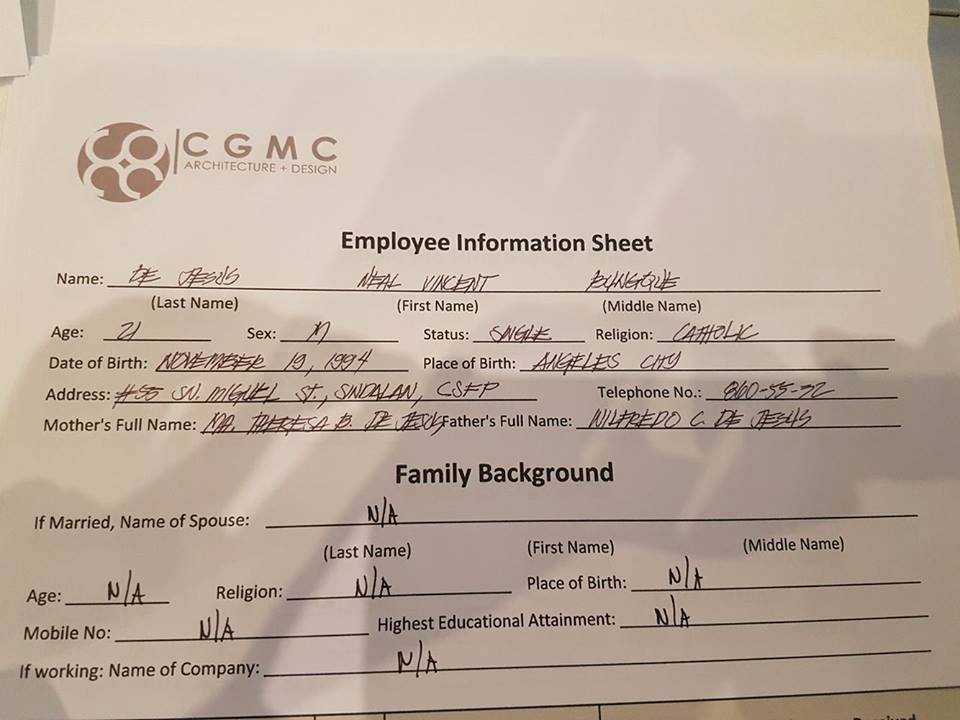 CGMC
ARCHITECTURE + DESIGN
Employee Information Sheet
Name: DE JESUS NEAL VINCENT
(Last Name) (First Name) (Middle Name)
Age: 21 Sex: M Status: SINGLE Religion: CATHOLIC
Date of Birth: NOVEMBER 19, 1994 Place of Birth: ANGELES CITY
Address: #55 SN. MIGUEL ST., SINDALAN, CSFP Telephone No.: 860-55-32
Mother's Full Name: MA. THERESA B. DE JESUS Father's Full Name: WILFREDO C. DE JESUS
Family Background
If Married, Name of Spouse: N/A
(Last Name) (First Name) (Middle Name)
Age: N/A Religion: N/A Place of Birth: N/A
Mobile No: N/A Highest Educational Attainment: N/A
If working: Name of Company: N/A